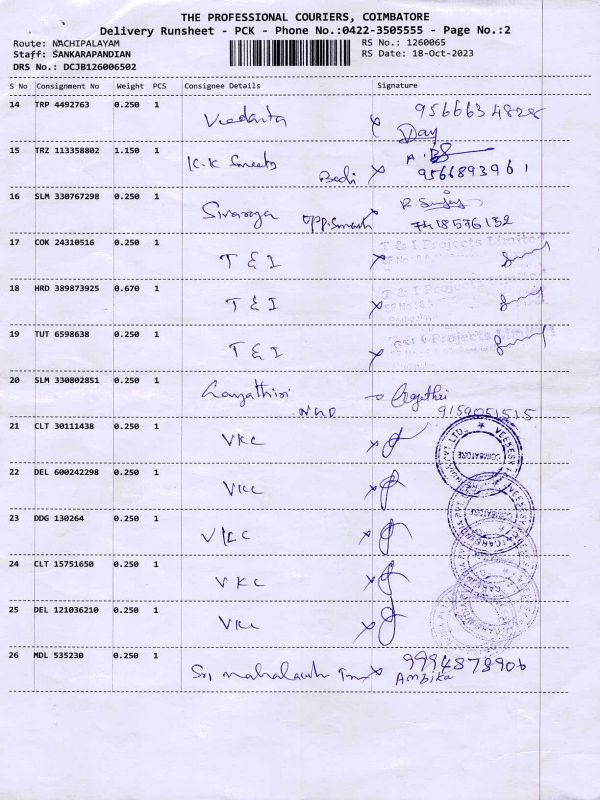 THE PROFESSIONAL COURIERS, COIMBATORE
Delivery Runsheet - PCK - Phone No.:0422-3505555 - Page No.:2
Route: NACHIPALAYAM RS No.: 1260065
Staff: SANKARAPANDIAN RS Date: 18-Oct-2023
DRS No.: DCJB126006502
S No Consignment No Weight PCS Consignee Details Signature
14 TRP 4492763 0.250 1 Vedanta 9566634828
15 TRZ 113358802 1.150 1 K.K Sweets 9566893961
16 SLM 330767298 0.250 1 7418576132
17 COK 24310516 0.250 1 T & I T & I Projects Limited
18 HRD 389873925 0.670 1 T & I T & I Projects Limited
19 TUT 6598638 0.250 1 T & I T & I Projects Limited
20 SLM 330802851 0.250 1 Gayathiri 9159051515
21 CLT 30111438 0.250 1 VKC COIMBATORE
22 DEL 600242298 0.250 1 VKC
23 DDG 130264 0.250 1 VKC
24 CLT 15751650 0.250 1 VKC
25 DEL 121036210 0.250 1 VKC
26 MDL 535230 0.250 1 Sri mahalaxmi 9994878906
Ambika